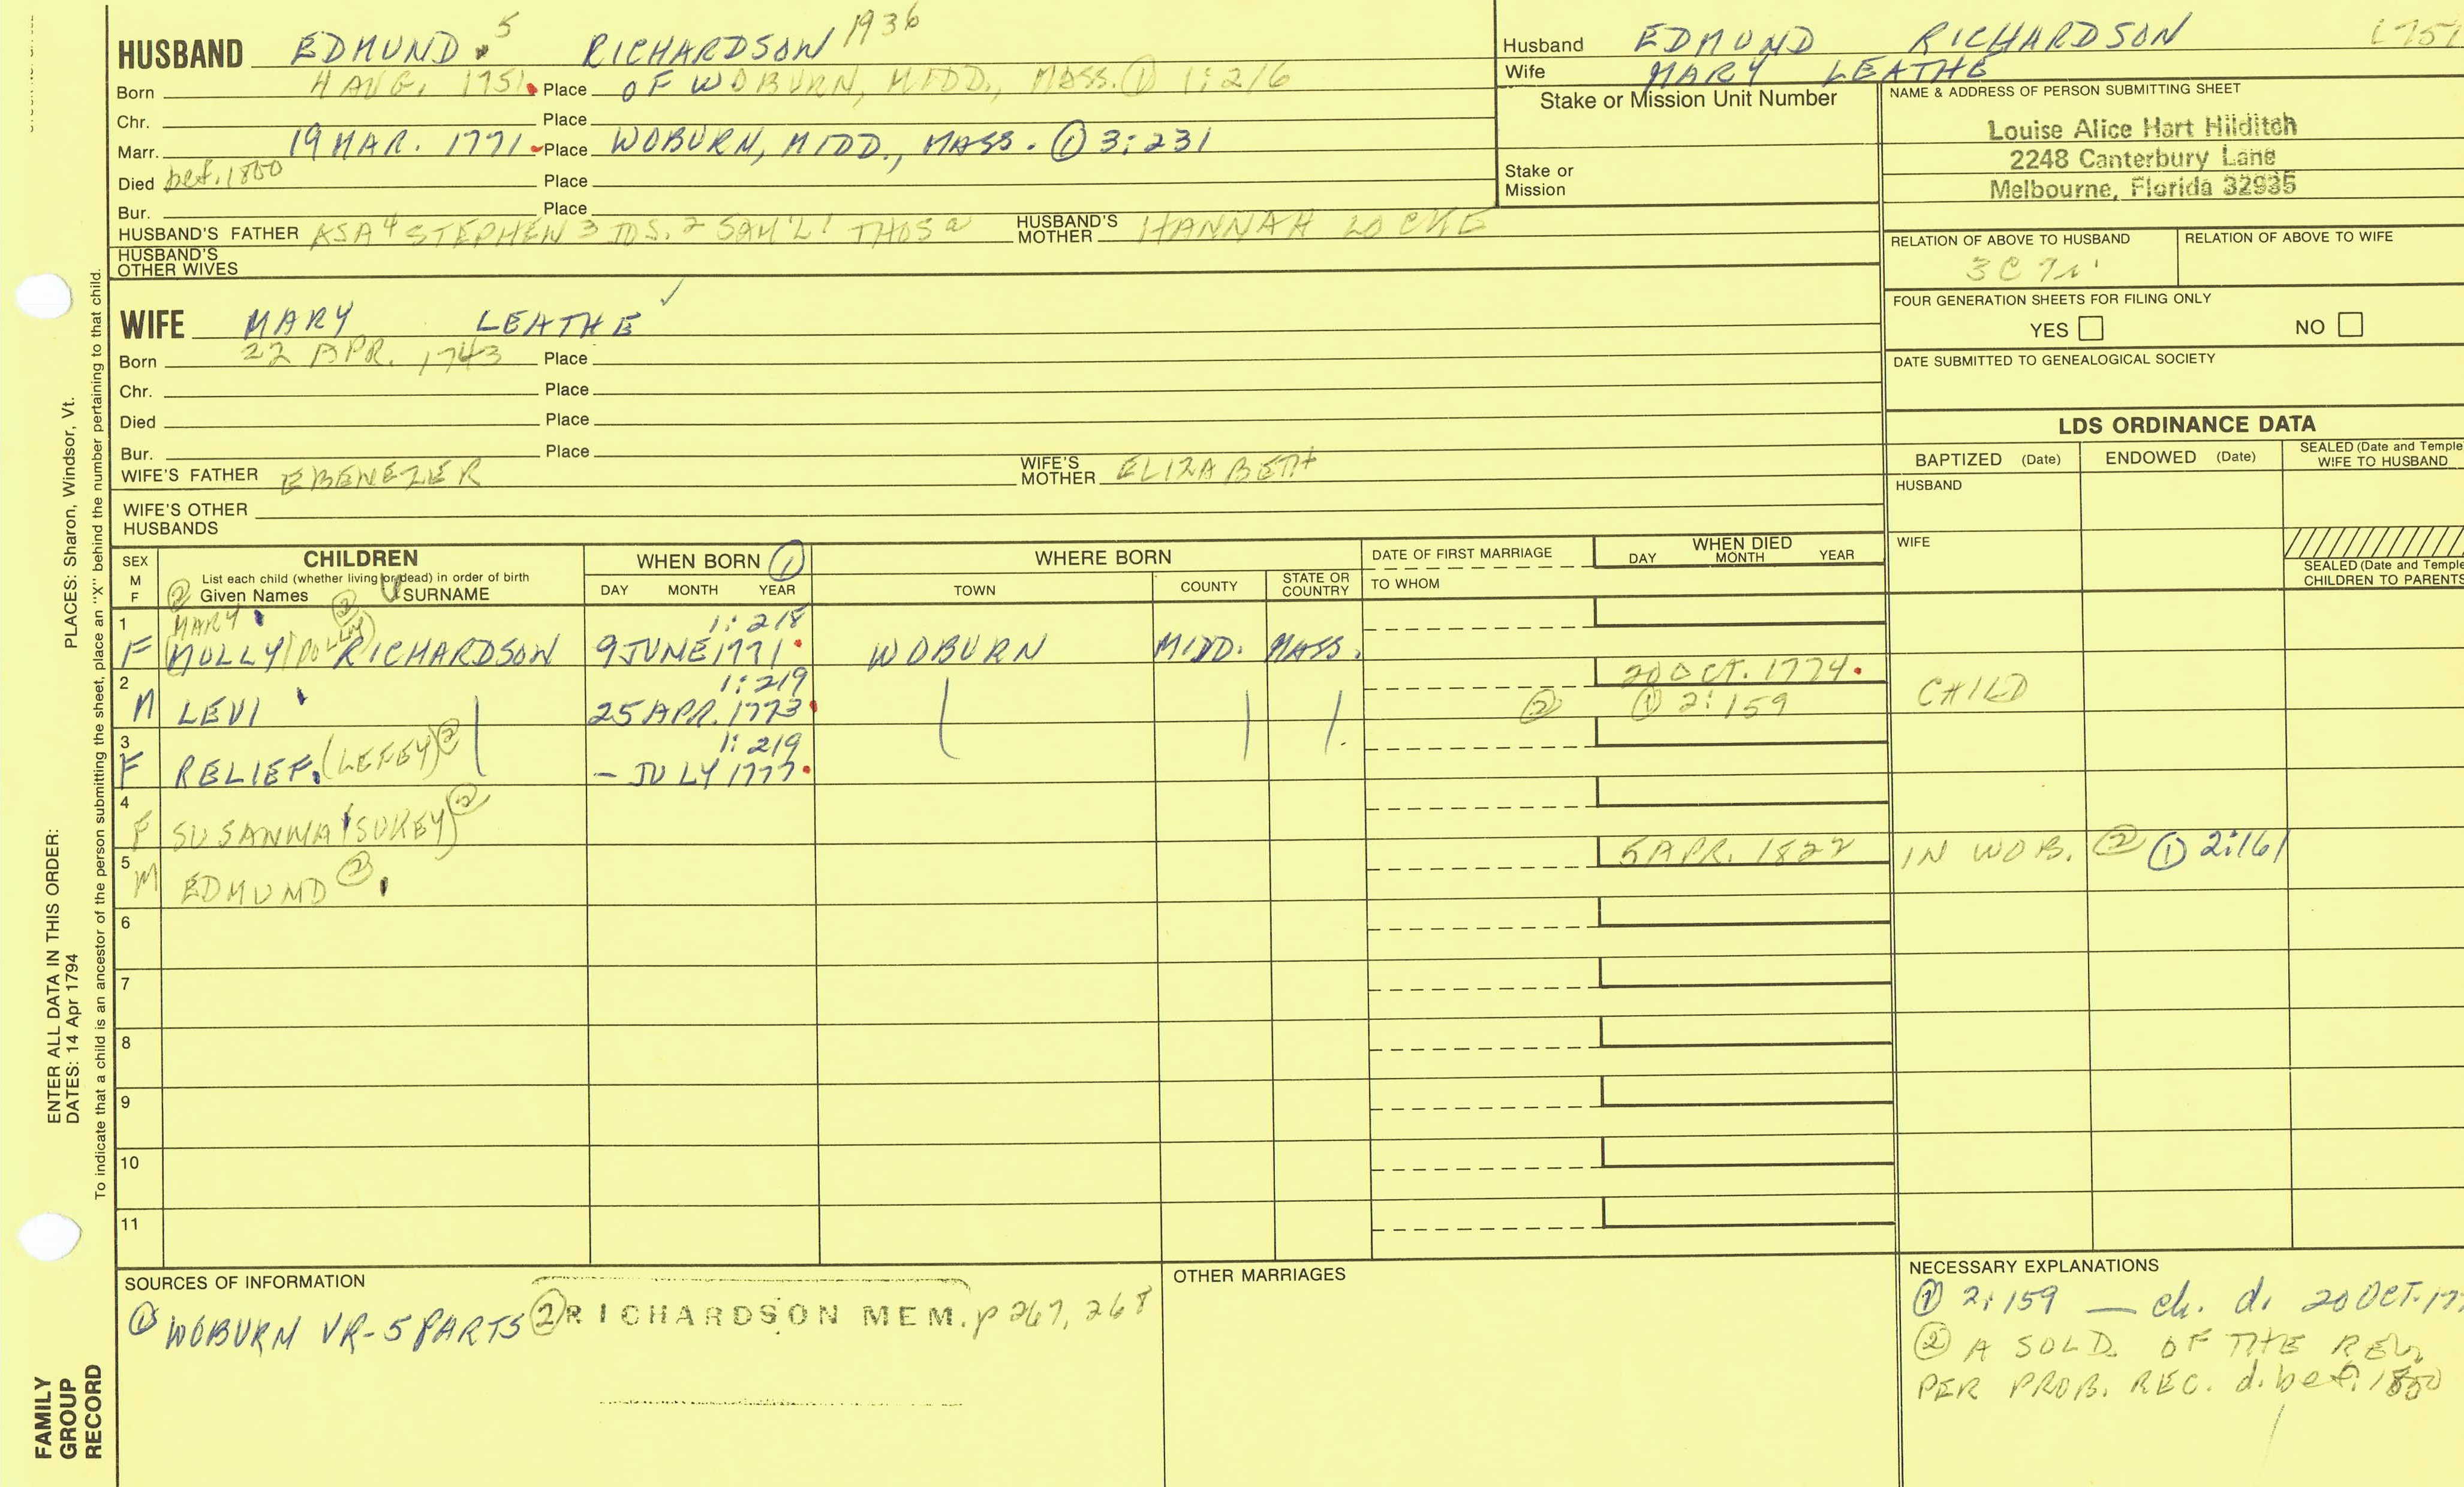 HUSBAND EDMUND 5 RICHARDSON 1936
Born 4 AUG. 1751 Place OF WOBURN, MIDD., MASS. ① 1:216
Chr. Place
Marr. 19 MAR. 1771 Place WOBURN, MIDD., MASS. ① 3:231
Died bef. 1800 Place
Bur. Place
HUSBAND'S FATHER ASA 4 STEPHEN 3 JOS. 2 SAM'L 1 THOS a HUSBAND'S MOTHER HANNAH LOCKE
HUSBAND'S OTHER WIVES
Husband EDMUND RICHARDSON 1751
Wife MARY LEATHE
Stake or Mission Unit Number
Stake or Mission
NAME & ADDRESS OF PERSON SUBMITTING SHEET
Louise Alice Hart Hilditch
2248 Canterbury Lane
Melbourne, Florida 32935
RELATION OF ABOVE TO HUSBAND RELATION OF ABOVE TO WIFE
3C 7r
FOUR GENERATION SHEETS FOR FILING ONLY
YES NO
DATE SUBMITTED TO GENEALOGICAL SOCIETY
WIFE MARY LEATHE ✓
Born 22 APR. 1743 Place
Chr. Place
Died Place
Bur. Place
WIFE'S FATHER EBENEZER WIFE'S MOTHER ELIZABETH
WIFE'S OTHER HUSBANDS
LDS ORDINANCE DATA
BAPTIZED (Date) ENDOWED (Date) SEALED (Date and Temple WIFE TO HUSBAND
HUSBAND
WIFE
SEALED (Date and Temple
CHILDREN TO PARENTS
SEX M F
CHILDREN
List each child (whether living or dead) in order of birth
② Given Names SURNAME
WHEN BORN ①
DAY MONTH YEAR
WHERE BORN
TOWN COUNTY STATE OR COUNTRY
DATE OF FIRST MARRIAGE
TO WHOM
WHEN DIED
DAY MONTH YEAR
1 MARY ② 1:218
F (MOLLY) (POLLY) RICHARDSON 9 JUNE 1771 WOBURN MIDD. MASS.
2 1:219 20 OCT. 1774
M LEVI 25 APR. 1773 ② ① 2:159 CHILD
3 1:219
F RELIEF (LEFEY) ② – JULY 1777
4
F SUSANNA (SUKEY) ②
5 5 APR. 1822 IN WOB. ② ① 2:161
M EDMUND ②
6
7
8
9
10
11
SOURCES OF INFORMATION
① WOBURN VR-5 PARTS ② RICHARDSON MEM. p 267, 268
OTHER MARRIAGES
NECESSARY EXPLANATIONS
① 2:159 — ch. d. 20 OCT. 17
② A SOLD. OF THE REV.
PER PROB. REC. d. bef. 1800
PLACES: Sharon, Windsor, Vt.
ENTER ALL DATA IN THIS ORDER:
DATES: 14 Apr 1794
To indicate that a child is an ancestor of the person submitting the sheet, place an "X" behind the number pertaining to that child.
FAMILY
GROUP
RECORD